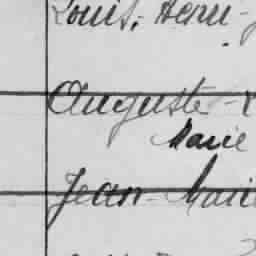 Louis, Henri-
Auguste-
Marie
Jean-Marie